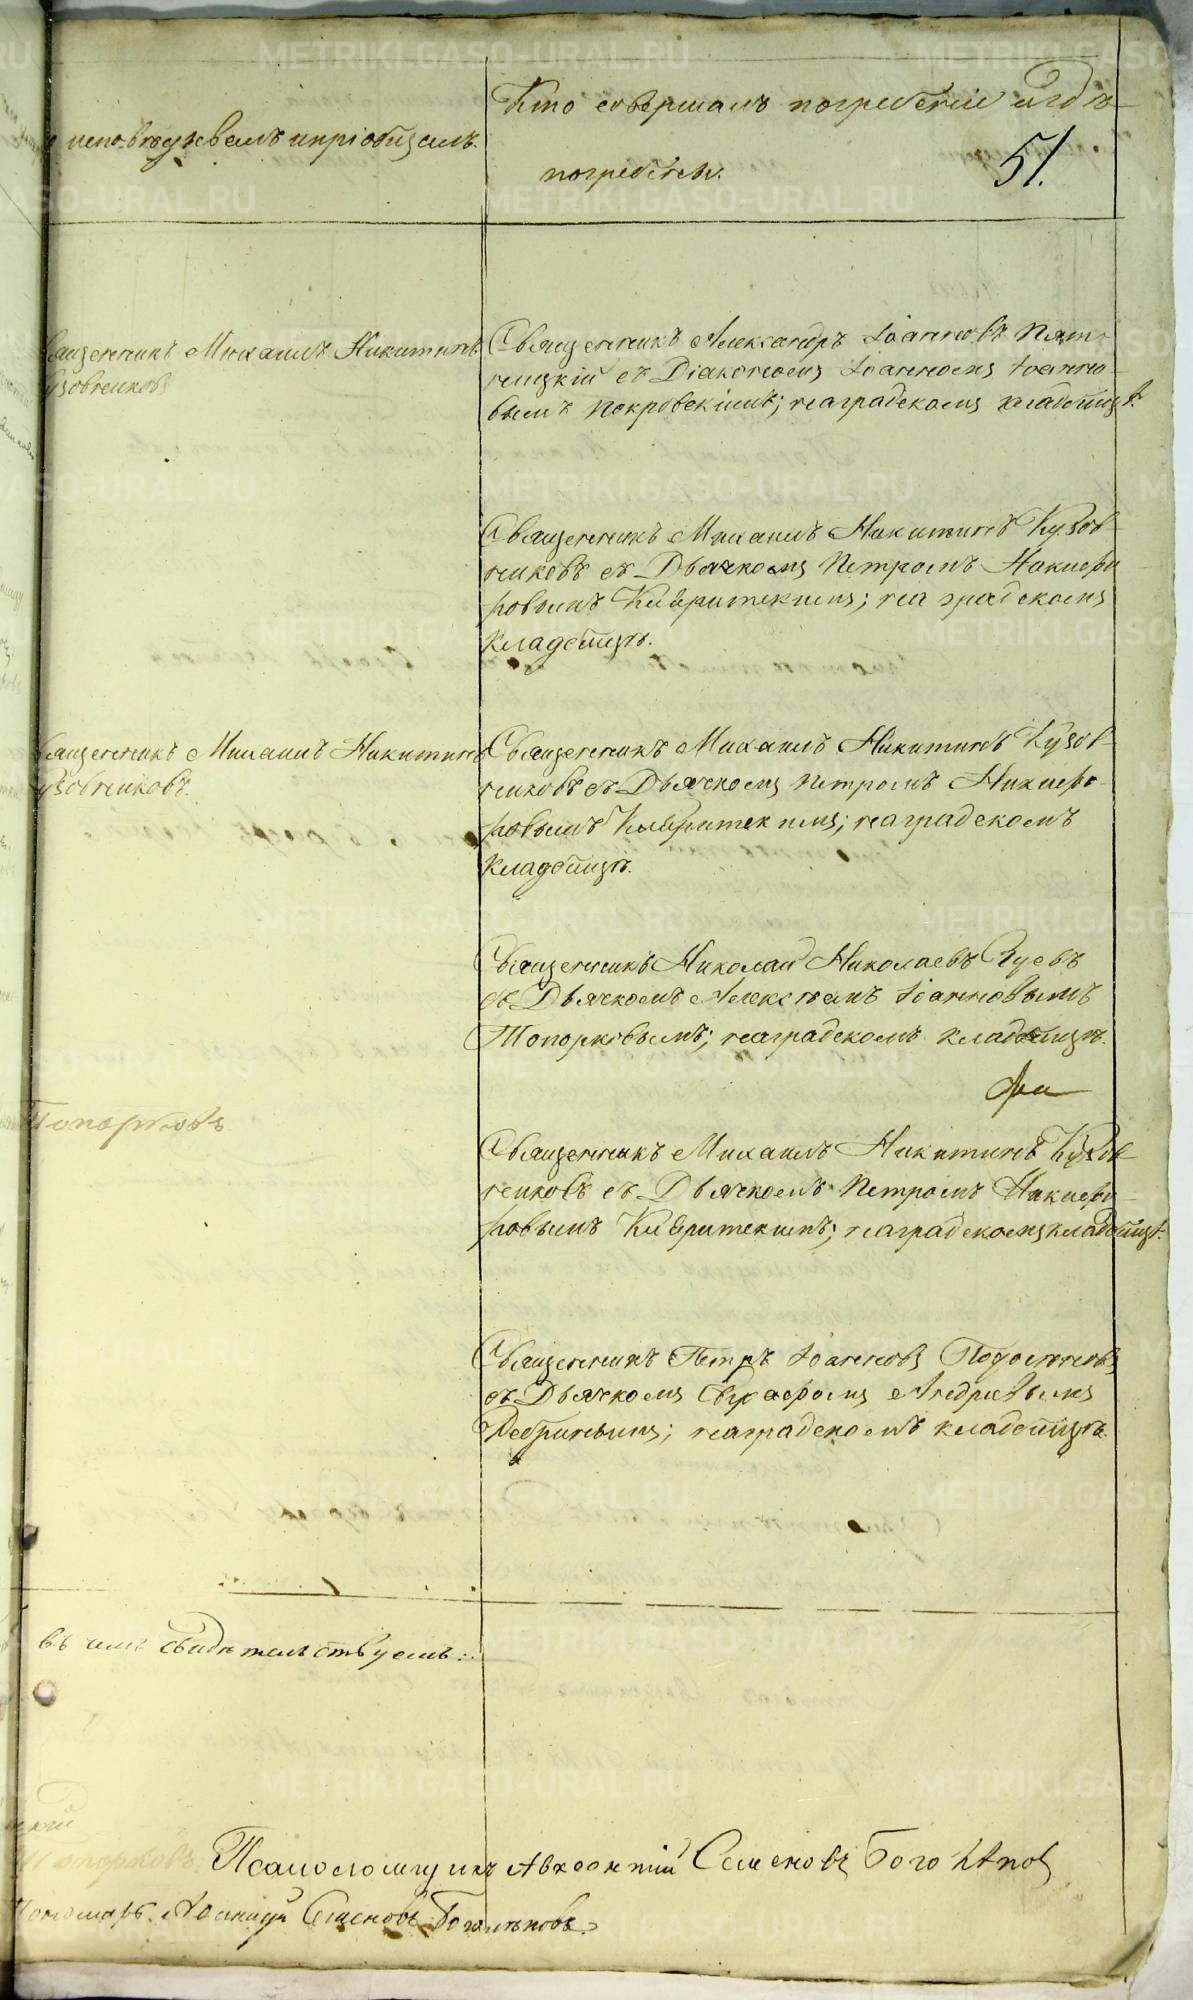 Кто совершалъ погребеніе и гдѣ
исповѣдывалъ и пріобщалъ.
погребены.
51.
Священникъ Михаилъ Никитинъ
Кузовниковъ
Священникъ Александръ Іоанновъ Пят-
ницкій съ Діакономъ Іоанномъ Іоанно-
вымъ Покровскимъ; на градскомъ кладбищѣ.
Священникъ Михаилъ Никитинъ Кузов-
никовъ съ Дьячкомъ Петромъ Никифо-
ровымъ; на градскомъ
кладбищѣ.
Священникъ Михаилъ Никитинъ
Кузовниковъ.
Священникъ Михаилъ Никитинъ Кузов-
никовъ съ Дьячкомъ Петромъ Никифо-
ровымъ; на градскомъ
кладбищѣ.
Священникъ Николай Николаевъ Зуевъ
съ Дьячкомъ Алексѣемъ Іоанновымъ
Топорковымъ; на градскомъ кладбищѣ.
Топорковъ
Священникъ Михаилъ Никитинъ Кузов-
никовъ съ Дьячкомъ Петромъ Никифо-
ровымъ; на градскомъ кладбищѣ.
Священникъ Петръ Іоанновъ
съ Дьячкомъ Андреевымъ
на градскомъ кладбищѣ.
въ чемъ свидѣтельствуемъ:
Топорковъ
Псаломщикъ Авксентій Семеновъ Боголѣпов
Пономарь Семеновъ Боголѣповъ.
METRIKI.GASO-URAL.RU